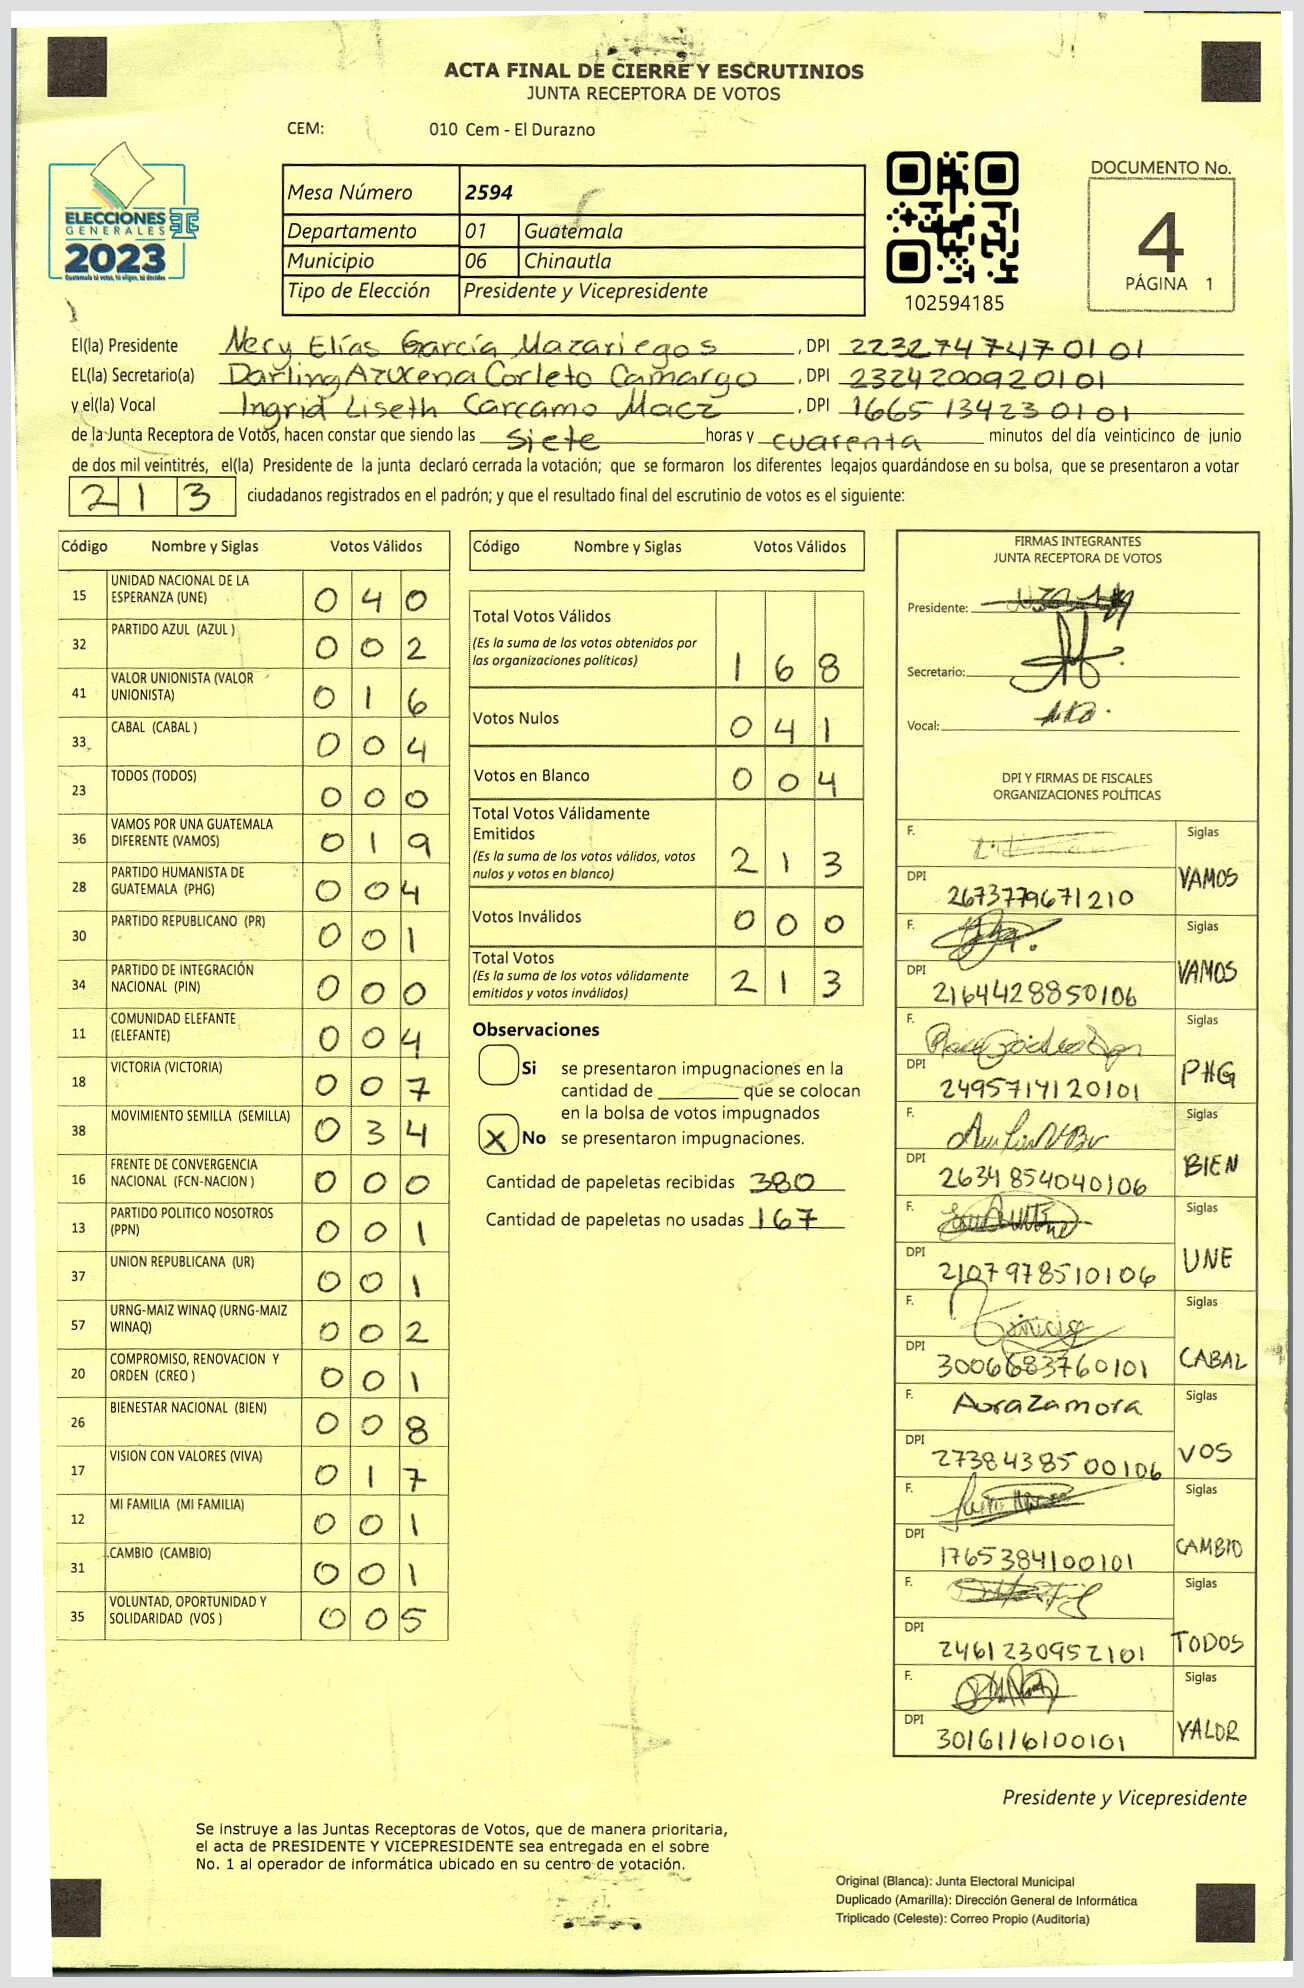 ACTA FINAL DE CIERRE Y ESCRUTINIOS
JUNTA RECEPTORA DE VOTOS
CEM: 010 Cem - El Durazno
ELECCIONES
GENERALES
2023
Guatemala tú votas, tú eliges, tú decides
Mesa Número 2594
Departamento 01 Guatemala
Municipio 06 Chinautla
Tipo de Elección Presidente y Vicepresidente
102594185
DOCUMENTO No.
4
PÁGINA 1
El(la) Presidente Nery Elías García Mazariegos , DPI 2232747470101
EL(la) Secretario(a) Darling Azucena Corleto Camargo , DPI 2324200920101
y el(la) Vocal Ingrid Liseth Carcamo Macz , DPI 1665134230101
de la Junta Receptora de Votos, hacen constar que siendo las siete horas y cuarenta minutos del día veinticinco de junio
de dos mil veintitrés, el(la) Presidente de la junta declaró cerrada la votación; que se formaron los diferentes legajos guardándose en su bolsa, que se presentaron a votar
213 ciudadanos registrados en el padrón; y que el resultado final del escrutinio de votos es el siguiente:
Código Nombre y Siglas Votos Válidos
15 UNIDAD NACIONAL DE LA ESPERANZA (UNE) 040
32 PARTIDO AZUL (AZUL ) 002
41 VALOR UNIONISTA (VALOR UNIONISTA) 016
33 CABAL (CABAL ) 004
23 TODOS (TODOS) 000
36 VAMOS POR UNA GUATEMALA DIFERENTE (VAMOS) 019
28 PARTIDO HUMANISTA DE GUATEMALA (PHG) 004
30 PARTIDO REPUBLICANO (PR) 001
34 PARTIDO DE INTEGRACIÓN NACIONAL (PIN) 000
11 COMUNIDAD ELEFANTE (ELEFANTE) 004
18 VICTORIA (VICTORIA) 007
38 MOVIMIENTO SEMILLA (SEMILLA) 034
16 FRENTE DE CONVERGENCIA NACIONAL (FCN-NACION ) 000
13 PARTIDO POLITICO NOSOTROS (PPN) 001
37 UNION REPUBLICANA (UR) 001
57 URNG-MAIZ WINAQ (URNG-MAIZ WINAQ) 002
20 COMPROMISO, RENOVACION Y ORDEN (CREO ) 001
26 BIENESTAR NACIONAL (BIEN) 008
17 VISION CON VALORES (VIVA) 017
12 MI FAMILIA (MI FAMILIA) 001
31 CAMBIO (CAMBIO) 001
35 VOLUNTAD, OPORTUNIDAD Y SOLIDARIDAD (VOS ) 005
Código Nombre y Siglas Votos Válidos
Total Votos Válidos
(Es la suma de los votos obtenidos por
las organizaciones políticas) 168
Votos Nulos 041
Votos en Blanco 004
Total Votos Válidamente
Emitidos
(Es la suma de los votos válidos, votos
nulos y votos en blanco) 213
Votos Inválidos 000
Total Votos
(Es la suma de los votos válidamente
emitidos y votos inválidos) 213
Observaciones
Si se presentaron impugnaciones en la
cantidad de ________ que se colocan
en la bolsa de votos impugnados
X No se presentaron impugnaciones.
Cantidad de papeletas recibidas 380
Cantidad de papeletas no usadas 167
FIRMAS INTEGRANTES
JUNTA RECEPTORA DE VOTOS
Presidente:
Secretario:
Vocal:
DPI Y FIRMAS DE FISCALES
ORGANIZACIONES POLÍTICAS
F. Siglas
DPI 2673779671210 VAMOS
F. Siglas
DPI 2164428850106 VAMOS
F. Siglas
DPI 2495714120101 PHG
F. Siglas
DPI 2634854040106 BIEN
F. Siglas
DPI 2107978510106 UNE
F. Siglas
DPI 3006683760101 CABAL
F. Aura Zamora Siglas
DPI 2738438500106 VOS
F. Siglas
DPI 1765384100101 CAMBIO
F. Siglas
DPI 2461230952101 TODOS
F. Siglas
DPI 3016116100101 VALOR
Presidente y Vicepresidente
Se instruye a las Juntas Receptoras de Votos, que de manera prioritaria,
el acta de PRESIDENTE Y VICEPRESIDENTE sea entregada en el sobre
No. 1 al operador de informática ubicado en su centro de votación.
Original (Blanca): Junta Electoral Municipal
Duplicado (Amarilla): Dirección General de Informática
Triplicado (Celeste): Correo Propio (Auditoría)